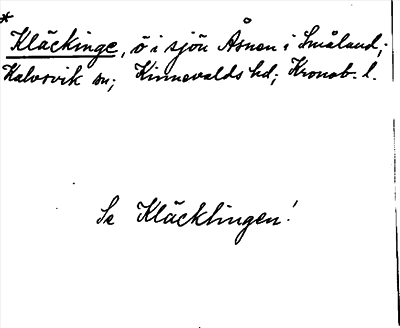 *
Kläckinge, ö i sjön Åsnen i Småland;
Kalvsvik sn; Kinnevalds hd; Kronob. l.
Se Kläcklingen!